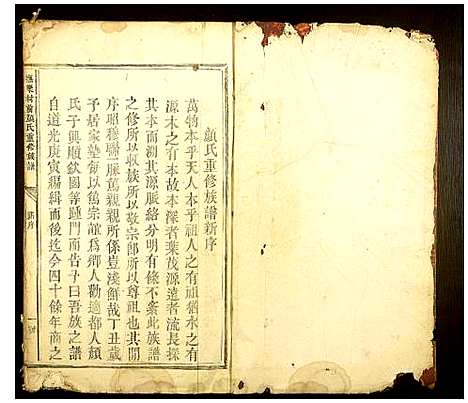 顏氏重修族譜新序
萬物本乎天人本乎祖人之有祖猶水之有
源木之有本故本深者葉茂源遠者流長探
其本而溯其源脈絡分明有條不紊此族譜
之修所以收族所以敬宗即所以尊祖也其間
序昭穆聯一脈篤親親所係豈淺鮮哉丁丑歲
予居家塾每以篤宗誼為鄉人勸適都人顏
氏子興順欽國等踵門而告予曰吾族之譜
自道光庚寅編輯而後迄今四十餘年商之
村前顏氏重修族譜
新序
一